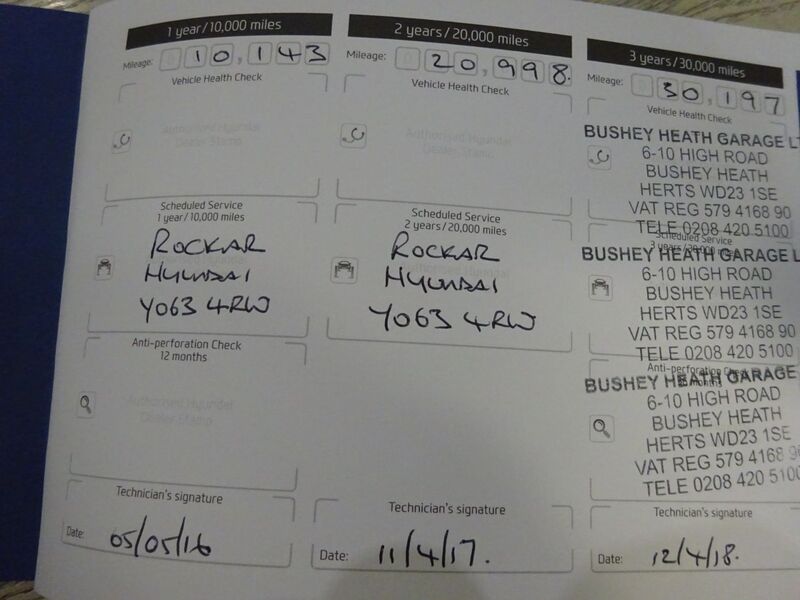 1 year/10,000 miles
Mileage: 10,143
Vehicle Health Check
Authorised Hyundai
Dealer Stamp
Scheduled Service
1 year/10,000 miles
ROCKAR
HYUNDAI
YO63 4RW
Anti-perforation Check
12 months
Authorised Hyundai
Dealer Stamp
Technician's signature
Date: 05/05/16
2 years/20,000 miles
Mileage: 20,998.
Vehicle Health Check
Authorised Hyundai
Dealer Stamp
Scheduled Service
2 years/20,000 miles
ROCKAR
HYUNDAI
YO63 4RW
Technician's signature
Date: 11/4/17.
3 years/30,000 miles
Mileage: 30,197
Vehicle Health Check
BUSHEY HEATH GARAGE L
6-10 HIGH ROAD
BUSHEY HEATH
HERTS WD23 1SE
VAT REG 579 4168 90
TELE 0208 420 5100
Scheduled Service
3 years/30,000 miles
BUSHEY HEATH GARAGE L
6-10 HIGH ROAD
BUSHEY HEATH
HERTS WD23 1SE
VAT REG 579 4168 90
TELE 0208 420 5100
Anti-perforation Check
BUSHEY HEATH GARAGE
6-10 HIGH ROAD
BUSHEY HEATH
HERTS WD23 1SE
VAT REG 579 4168 90
TELE 0208 420 5100
Technician's signature
Date: 12/4/18.